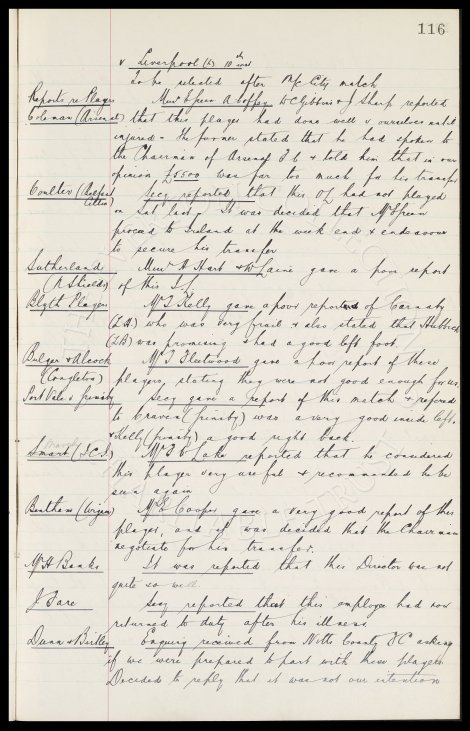 116
v Liverpool (h) 10th inst
To be selected after M/c City match
Reports re Players Messrs Green A Coffey W C Gibbins & J Sharp reported
Coleman (Arsenal) that this player had done well v ourselves until
injured. The former stated that he had spoken to
the Chairman of Arsenal F C & told him that in our
opinion £5500 was far too much for his transfer
Coulter (Belfast Secy reported that this OL had not played
Celtic) on Sat last. It was decided that Mr Green
proceed to Ireland at the week end & endeavour
to secure his transfer
Sutherland Messrs H Hart & W Laine gave a poor report
(N Shields) of this
Blyth Players Mr J Kelly gave a poor report of Carnaby
who was very frail & also stated that
(LB) was promising & had a good left foot.
Bolger & Alcock Mr J Fleetwood gave a poor report of these
(Congleton) players, stating they were not good enough for us.
Port Vale v Grimsby Secy gave a report of this match & referred
to Craven (Grimsby) was a very good inside left,
& Kelly (Grimsby) a good right back.
Smart Mr T C Lake reported that he considered
this player very useful & recommended he be
seen again
Bentham (Wigan) Mr E Cooper gave a very good report of this
player, and it was decided that the Chairman
negotiate for his transfer.
Mr H Banks It was reported that this Director was not
quite so well.
J Bare Secy reported that this employee had now
returned to duty after his illness
Dunn & Birtley Enquiry received from Notts County F C asking
if we were prepared to part with these players
Decided to reply that it was not our intention